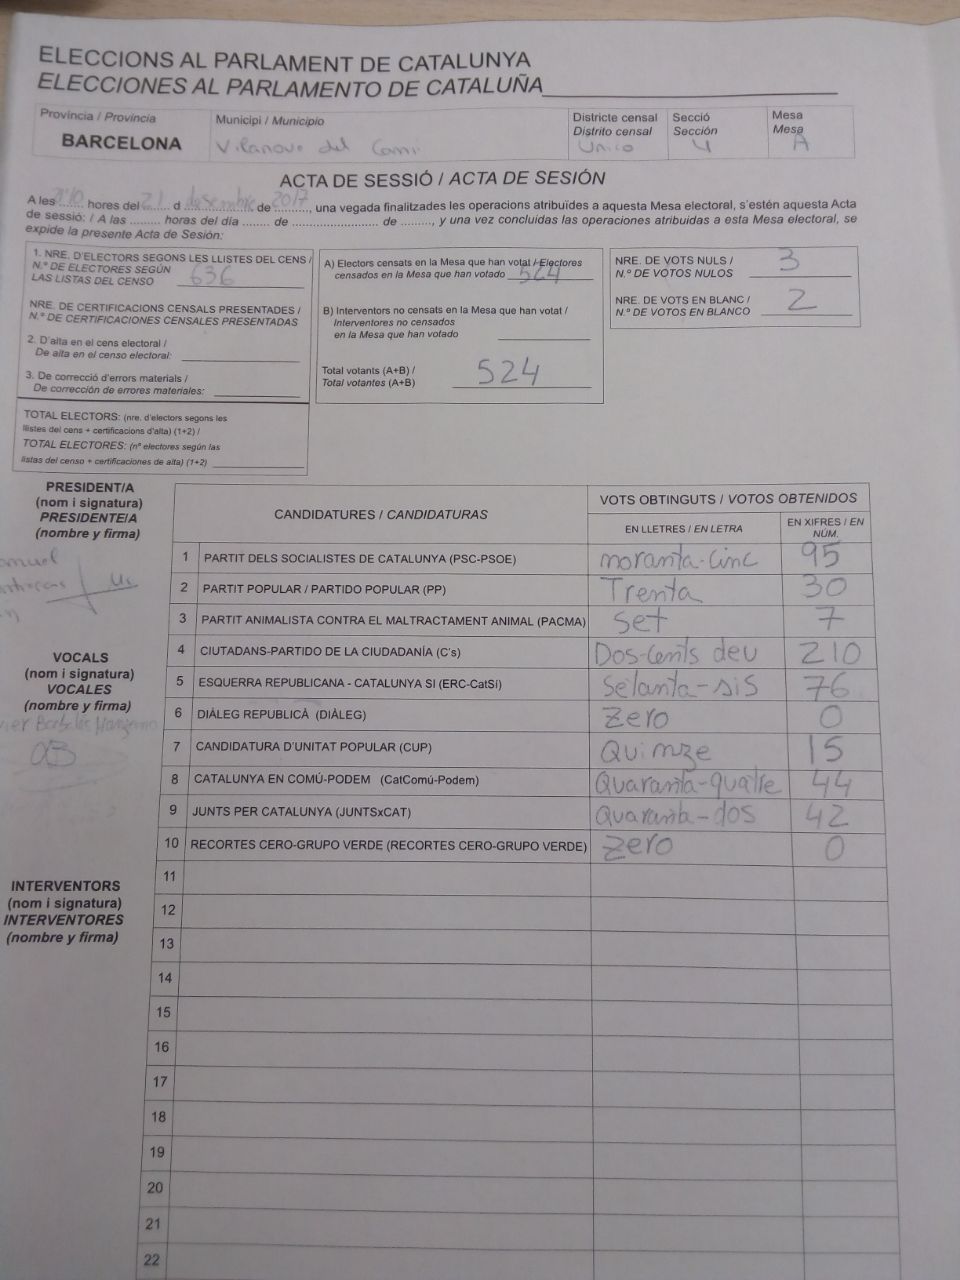 ELECCIONS AL PARLAMENT DE CATALUNYA
ELECCIONES AL PARLAMENTO DE CATALUÑA
Província / Provincia
BARCELONA
Municipi / Municipio
Vilanova del Camí
Districte censal
Distrito censal
Unico
Secció
Sección
4
Mesa
Mesa
A
ACTA DE SESSIÓ / ACTA DE SESIÓN
A les ........ hores del 21 d desembre de 2017, una vegada finalitzades les operacions atribuïdes a aquesta Mesa electoral, s'estén aquesta Acta
de sessió: / A las ......... horas del día ........ de ........................ de ........., y una vez concluidas las operaciones atribuidas a esta Mesa electoral, se
expide la presente Acta de Sesión:
1. NRE. D'ELECTORS SEGONS LES LLISTES DEL CENS /
N.º DE ELECTORES SEGÚN
LAS LISTAS DEL CENSO 636
NRE. DE CERTIFICACIONS CENSALS PRESENTADES /
N.º DE CERTIFICACIONES CENSALES PRESENTADAS
2. D'alta en el cens electoral /
De alta en el censo electoral:
3. De correcció d'errors materials /
De corrección de errores materiales:
TOTAL ELECTORS: (nre. d'electors segons les
llistes del cens + certificacions d'alta) (1+2) /
TOTAL ELECTORES: (nº electores según las
listas del censo + certificaciones de alta) (1+2)
A) Electors censats en la Mesa que han votat / Electores
censados en la Mesa que han votado 524
B) Interventors no censats en la Mesa que han votat /
Interventores no censados
en la Mesa que han votado
Total votants (A+B) /
Total votantes (A+B) 524
NRE. DE VOTS NULS /
N.º DE VOTOS NULOS 3
NRE. DE VOTS EN BLANC /
N.º DE VOTOS EN BLANCO 2
PRESIDENT/A
(nom i signatura)
PRESIDENTE/A
(nombre y firma)
VOCALS
(nom i signatura)
VOCALES
(nombre y firma)
INTERVENTORS
(nom i signatura)
INTERVENTORES
(nombre y firma)
CANDIDATURES / CANDIDATURAS
VOTS OBTINGUTS / VOTOS OBTENIDOS
EN LLETRES / EN LETRA
EN XIFRES / EN
NÚM.
1 PARTIT DELS SOCIALISTES DE CATALUNYA (PSC-PSOE) noranta-cinc 95
2 PARTIT POPULAR / PARTIDO POPULAR (PP) Trenta 30
3 PARTIT ANIMALISTA CONTRA EL MALTRACTAMENT ANIMAL (PACMA) Set 7
4 CIUTADANS-PARTIDO DE LA CIUDADANÍA (C's) Dos-cents deu 210
5 ESQUERRA REPUBLICANA - CATALUNYA SI (ERC-CatSí) Setanta-sis 76
6 DIÀLEG REPUBLICÀ (DIÀLEG) Zero 0
7 CANDIDATURA D'UNITAT POPULAR (CUP) Quinze 15
8 CATALUNYA EN COMÚ-PODEM (CatComú-Podem) Quaranta-quatre 44
9 JUNTS PER CATALUNYA (JUNTSxCAT) Quaranta-dos 42
10 RECORTES CERO-GRUPO VERDE (RECORTES CERO-GRUPO VERDE) Zero 0
11
12
13
14
15
16
17
18
19
20
21
22